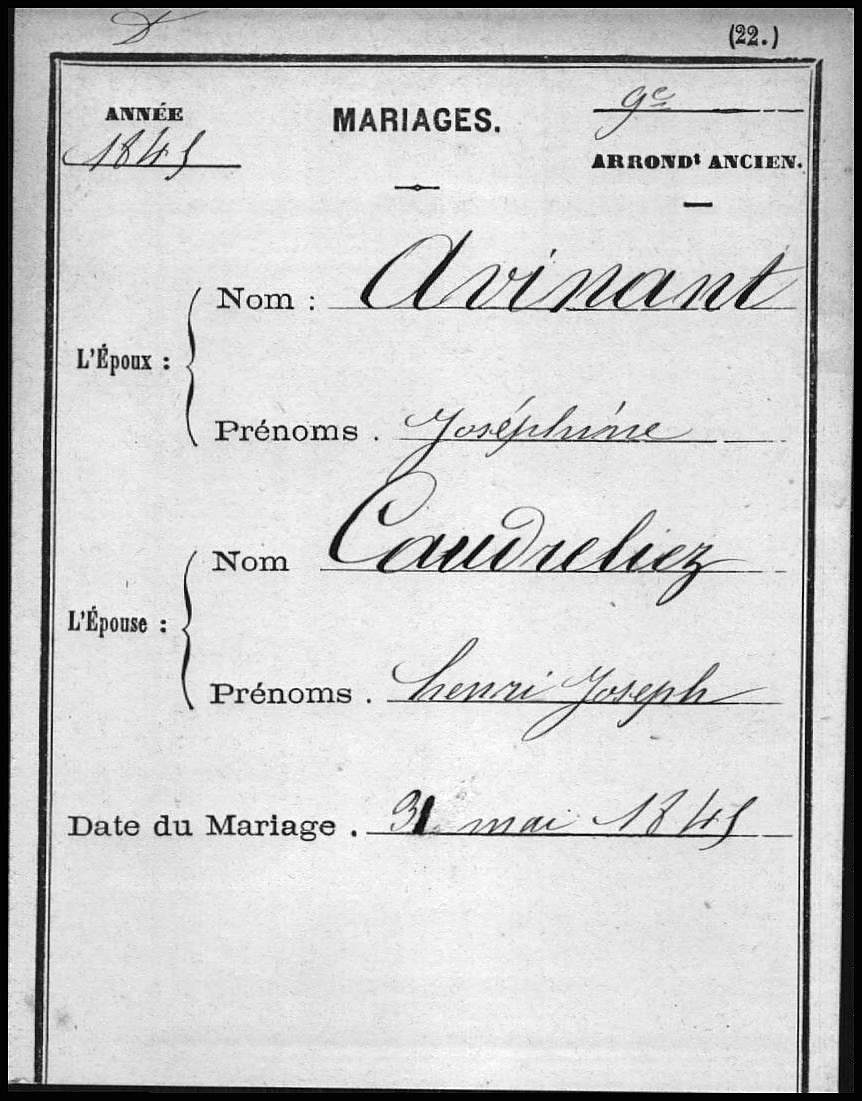 D
(22.)
ANNÉE
1845
MARIAGES.
9e
ARRONDt ANCIEN.
L'Époux :
Nom : Avinant
Prénoms . Joséphine
L'Épouse :
Nom Caudreliez
Prénoms . henri Joseph
Date du Mariage . 31 mai 1845